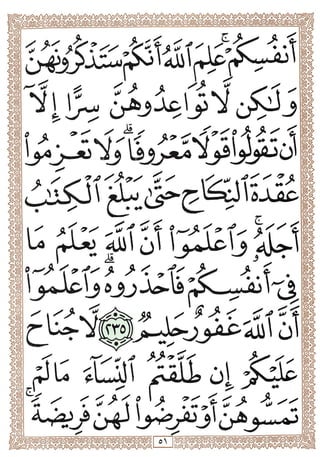 أَنفُسِكُمْ ۚ عَلِمَ ٱللَّهُ أَنَّكُمْ سَتَذْكُرُونَهُنَّ
وَلَـٰكِن لَّا تُوَاعِدُوهُنَّ سِرًّا إِلَّآ
أَن تَقُولُوا۟ قَوْلًا مَّعْرُوفًا ۚ وَلَا تَعْزِمُوا۟
عُقْدَةَ ٱلنِّكَاحِ حَتَّىٰ يَبْلُغَ ٱلْكِتَـٰبُ
أَجَلَهُۥ ۚ وَٱعْلَمُوٓا۟ أَنَّ ٱللَّهَ يَعْلَمُ مَا
فِىٓ أَنفُسِكُمْ فَٱحْذَرُوهُ ۚ وَٱعْلَمُوٓا۟
أَنَّ ٱللَّهَ غَفُورٌ حَلِيمٌ ٢٣٥ لَّا جُنَاحَ
عَلَيْكُمْ إِن طَلَّقْتُمُ ٱلنِّسَآءَ مَا لَمْ
تَمَسُّوهُنَّ أَوْ تَفْرِضُوا۟ لَهُنَّ فَرِيضَةً ۚ
٥١